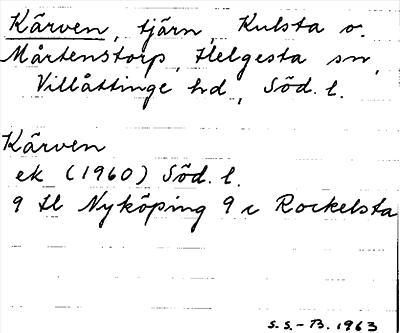 Kärven, tjärn, Kulsta o.
Mårtenstorp, Helgesta sn,
Villåttinge hd, Söd. l.
Kärven
ek (1960) Söd. l.
9 H Nyköping 9 c Rockelsta
S.S.-B. 1963